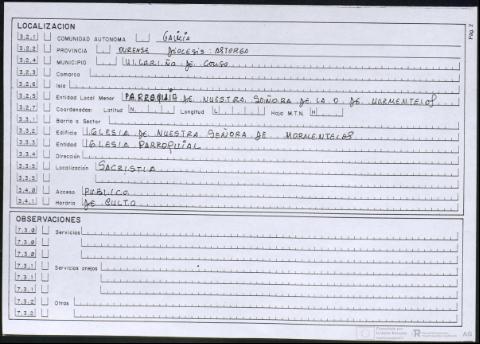 LOCALIZACION
3.2.1 COMUNIDAD AUTONOMA GALICIA
3.2.2 PROVINCIA OURENSE DIOCESIS: ASTORGA
3.2.4 MUNICIPIO VILARIÑO DE CONSO
3.2.3 Comarca
3.2.6 Isla
3.2.5 Entidad Local Menor PARROQUIA DE NUESTRA SEÑORA DE LA O DE MORMENTELOS
3.2.7 Coordenadas: Latitud N Longitud L Hoja M.T.N. H
3.3.1 Barrio o Sector
3.3.2 Edificio IGLESIA DE NUESTRA SEÑORA DE MORMENTELOS
3.3.3 Entidad IGLESIA PARROQUIAL
3.3.4 Dirección
Localización SACRISTIA
3.4.0 Acceso PUBLICO
3.4.1 Horario DE CULTO
OBSERVACIONES
7.3.0 Servicios
7.3.0
7.3.0
7.3.1 Servicios anejos
7.3.1
7.3.1
7.3.2 Otros
7.3.2
Pág. 2